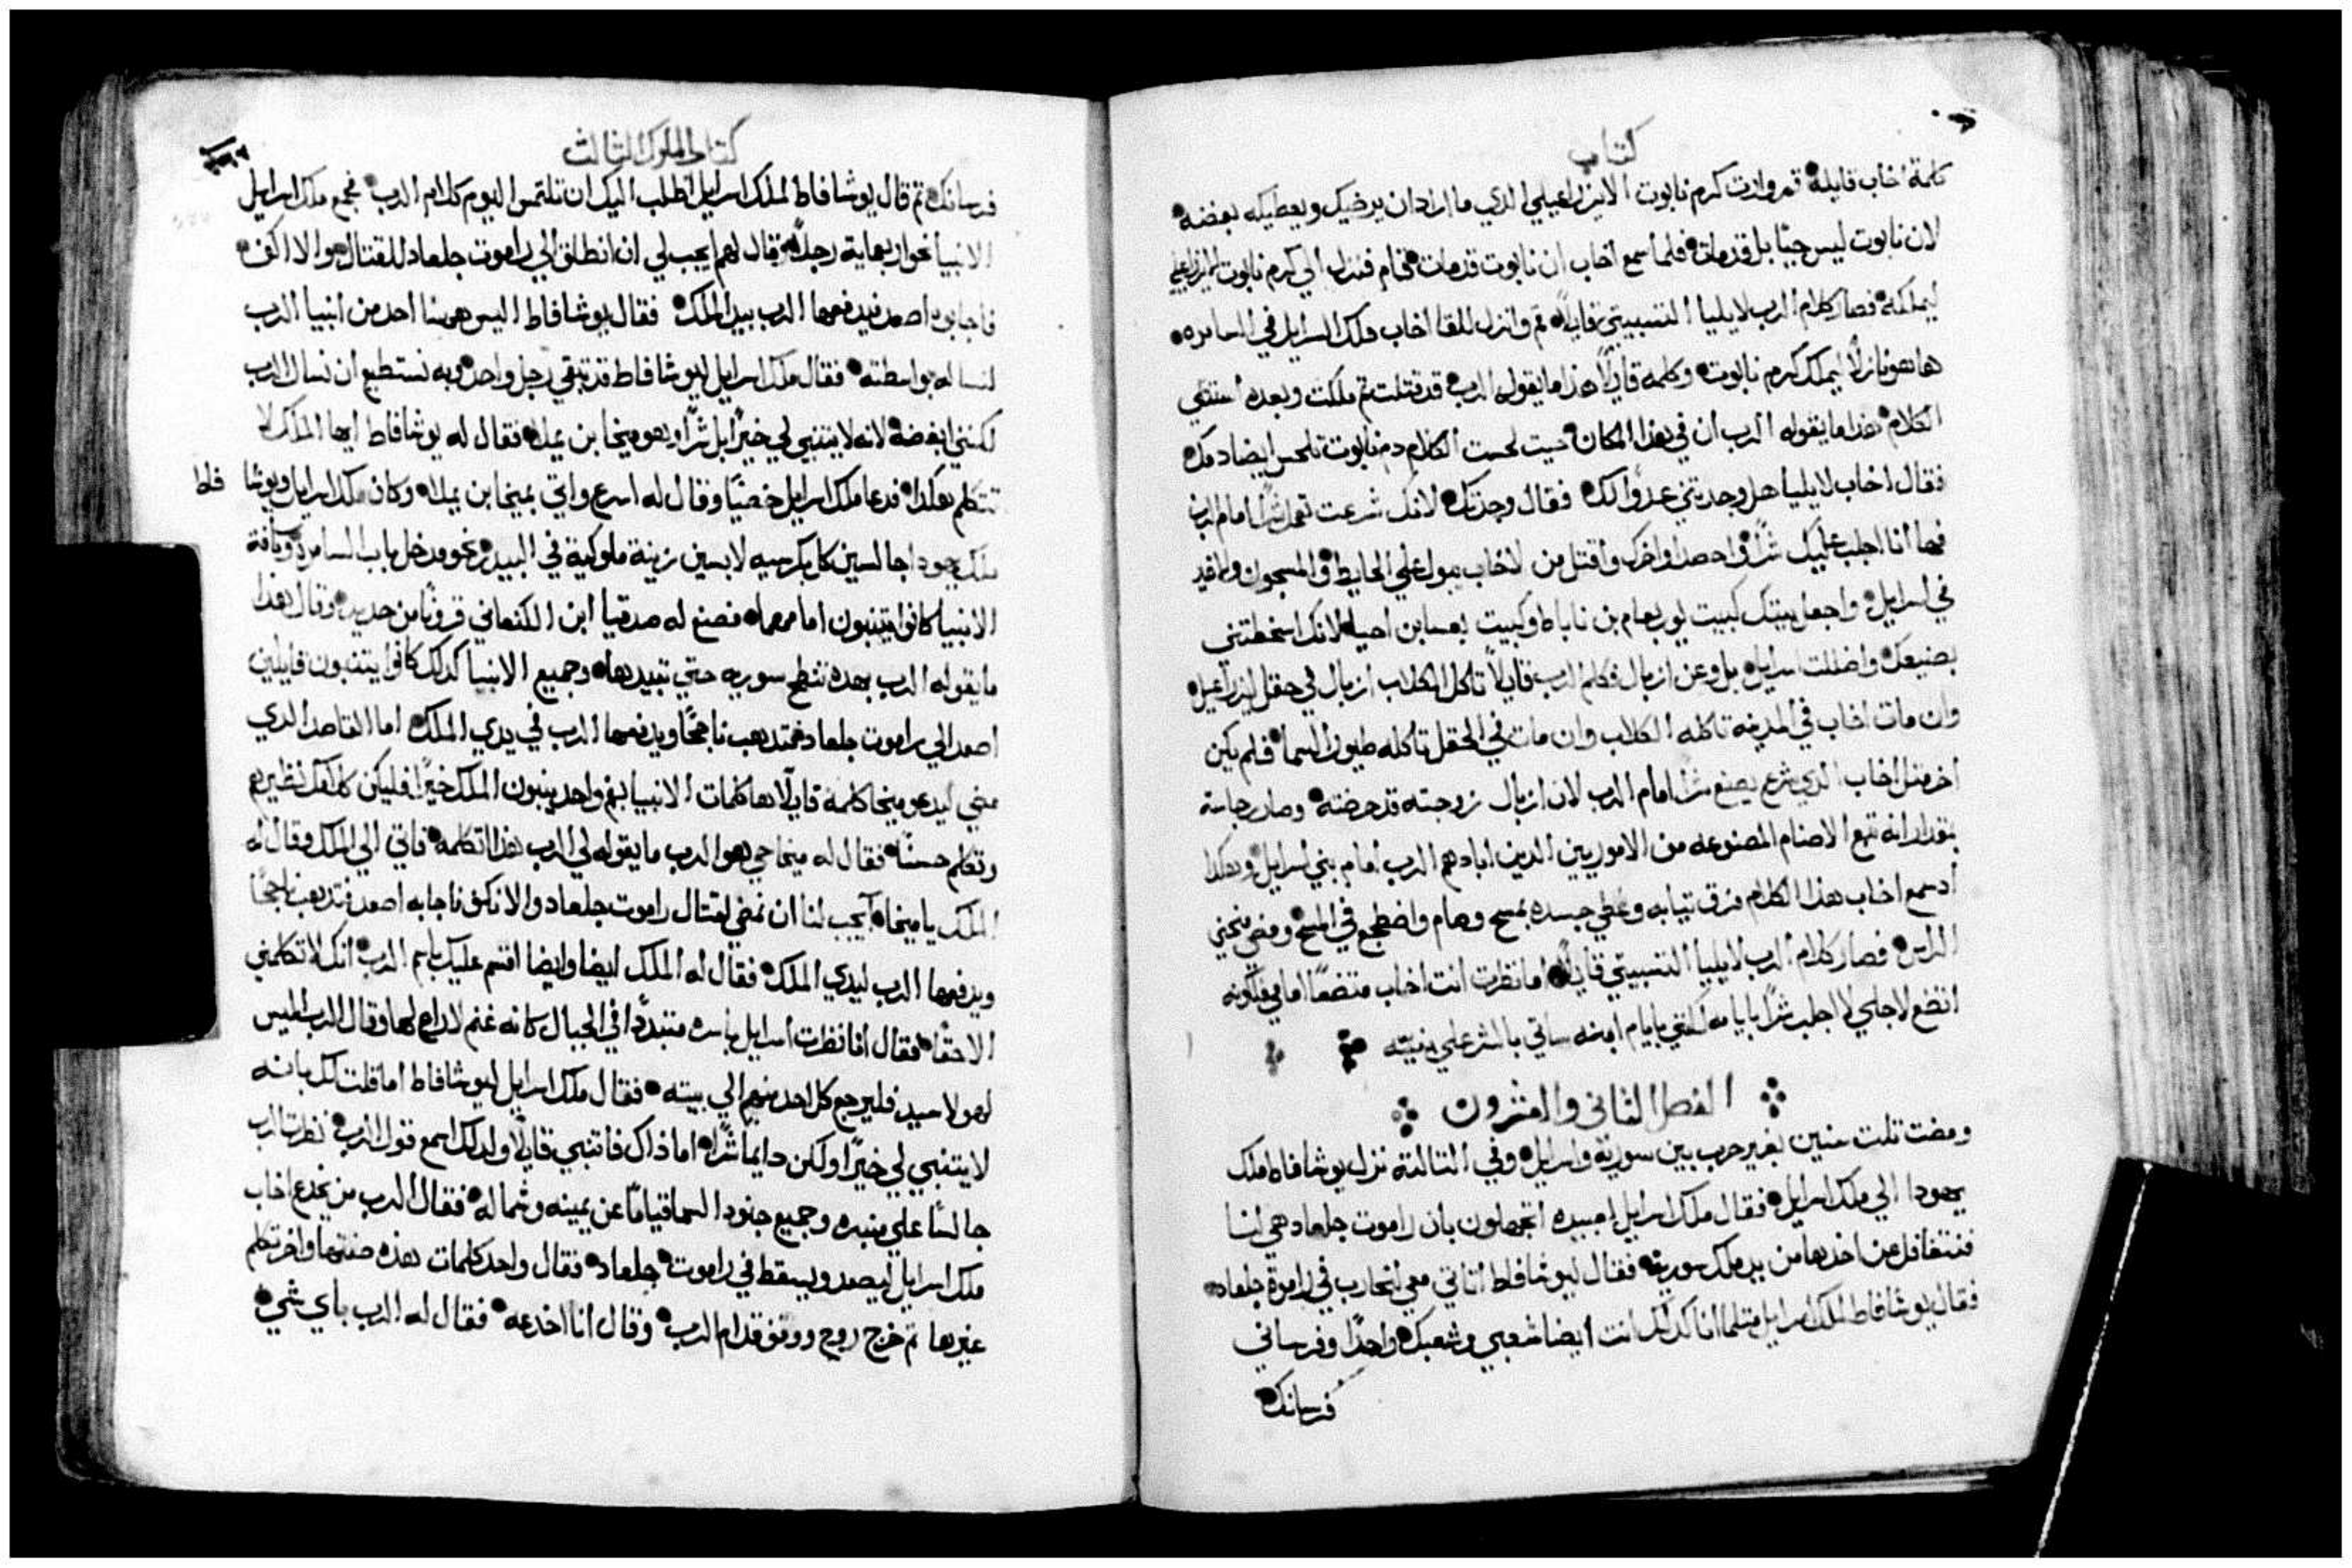 كتاب
كلمة اخاب قايلة قم وارت كرم نابوت الايزراعيلي الدي ما اراد ان يرضيك ويعطيكه بفضه
لان نابوت ليس حيًا بل قد مات فلما سمع اخاب ان نابوت قد مات قام فنزل الي كرم نابوت الايزراعيلي
ليملكه فصار كلام الرب لايليا التسبيتي قايلاً قم وانزل للقا اخاب ملك اسرايل في السامره
ها هو نازلاً ليملك كرم نابوت وكلمه قايلاً هذا ما يقوله الرب قد قتلت تم ملكت وبعده استتلي
الكلام هدا ما يقوله الرب ان في هدا المكان حيت لحست الكلاب دم نابوت تلحس ايضا دمك
فقال اخاب لايليا هل وجدتني عدوًا لك فقال وجدتك لانك شرعت تعمل شرًا امام الرب
فها انا اجلب عليك شرًا واحصد اواخرك واقتل من لاخاب بولا علي الحايط والمسجون والاخير
في اسرايل واجعل بيتك كبيت يوربعام بن ناباط وكبيت بعسا بن احيا لانك اسخطتني
بصنيعك واضللت اسرايل بل وعن ازبال فكلم الرب قايلاً تاكل الكلاب ازبال في حقل ايزراعيل
وان مات اخاب في المدينة تاكله الكلاب وان مات في الحقل تاكله طيور السما فلم يكن
اخر متل اخاب الدي شرع يصنع شرًا امام الرب لان ازبال زوجته قد حرضته وصار رجاسة
بمقدار انه تبع الاصنام المصنوعه من الاموريين الدين ابادهم الرب امام بني اسرايل وهكدا
اد سمع اخاب هدا الكلام مزق تيابه وغطي جسده بمسح وصام واضطجع في المسح ومضي منحني
الراس فصار كلام الرب لايليا التسبيتي قايلاً اما نظرت انت اخاب متضعًا امامي فلكونه
اتضع لاجلي لا اجلب شرًا بايامه لكنني بايام ابنه ساتي بالشر علي بيته
الفصل الثاني والعشرون
ومضت تلت سنين بغير حرب بين سورية واسرايل وفي التالتة نزل يوشافاط ملك
يهودا الي ملك اسرايل فقال ملك اسرايل لعبيده اتجهلون بان راموت جلعاد هي لنا
فنتغافل عن اخدها من يد ملك سورية فقال ليوشافاط اتاتي معي لنحارب في راموة جلعاد
فقال يوشافاط لملك اسرايل متلما انا كدلك انت ايضا شعبي وشعبك واحدًا وفرساني
فرسانك
كتاب الملوك الثالث
فرسانك تم قال يوشافاط لملك اسرايل اطلب اليك ان تلتمس اليوم كلام الرب فجمع ملك اسرايل
الانبيا نحو اربعماية رجل وقال لهم ايجب لي ان انطلق الي راموت جلعاد للقتال والا اكف
فاجابوه اصعد فيدفعها الرب بيد الملك فقال يوشافاط اليس ههنا احد من انبيا الرب
لنساله بواسطته فقال ملك اسرايل ليوشافاط قد تبقي رجل واحد وبه نستطيع ان نسال الرب
لكنني ابغضه لانه لا يتنبي لي خيرًا بل شرًا وهو ميخا بن يمله فقال له يوشافاط ايها الملك لا
تتكلم هكدا فدعا ملك اسرايل خصيًا وقال له اسرع واتي بميخا بن يملا وكان ملك اسرايل ويوشا فاط
ملك يهودا جالسين كل بكرسيه لابسين زينة ملوكية في البيدر نحو مدخل باب السامرة وكافة
الانبيا كانوا يتنبون امامهما فصنع له صدقيا ابن الكنعاني قرونًا من حديد وقال هدا
ما يقوله الرب بهده تنطح سوريه حتي تبيدها وجميع الانبيا كدلك كانوا يتنبون قايلين
اصعد الي راموت جلعاد فتدهب ناجحًا ويدفعها الرب في يدي الملك اما القاصد الدي
مضي ليدعو ميخا كلمه قايلاً ها كلمات الانبيا بفم واحد ينبون الملك خيرًا فليكن كلامك نظيرهم
وتكلم حسنًا فقال له ميخا حي هو الرب ما يقوله لي الرب هدا اتكلمه فاتي الي الملك وقال له
الملك يا ميخا ايجب لنا ان نمضي لقتال راموت جلعاد والا نكف فاجابه اصعد فتدهب ناجحًا
ويدفعها الرب ليدي الملك فقال له الملك ايضا وايضا اقسم عليك باسم الرب انك لا تكلمني
الا حقًا فقال انا نظرت اسرايل باسره متبددًا في الجبال كانه غنم لا راعي لها وقال الرب اليس
لهولا سيد فليرجع كل احد منهم الي بيته فقال ملك اسرايل ليوشافاط اما قلت لك بانه
لا يتنبي لي خيرًا ولكن دايمًا شرًا اما ذاك فاتنبي قايلاً ولدلك اسمع قول الرب نظرت الرب
جالسًا علي منبره وجميع جنود السما قيامًا عن يمينه وشماله فقال الرب من يخدع اخاب
ملك اسرايل ليصعد ويسقط في راموت جلعاد فقال واحد كلمات هذه صفتها واخر تكلم
غيرها تم خرج روح ووقف قدام الرب وقال انا اخدعه فقال له الرب باي شي